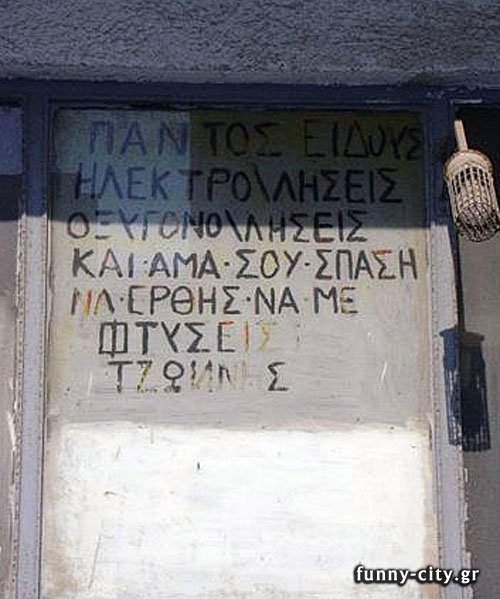 ΠΑΝΤΟΣ ΕΙΔΟΥΣ
ΗΛΕΚΤΡΟΛΛΗΣΕΙΣ
ΟΞΥΓΟΝΟΛΛΗΣΕΙΣ
ΚΑΙ·ΑΜΑ·ΣΟΥ·ΣΠΑΣΗ
ΝΑ·ΕΡΘΗΣ·ΝΑ·ΜΕ
ΦΤΥΣΕΙΣ
ΤΖΩΝΝΗΣ
funny-city.gr